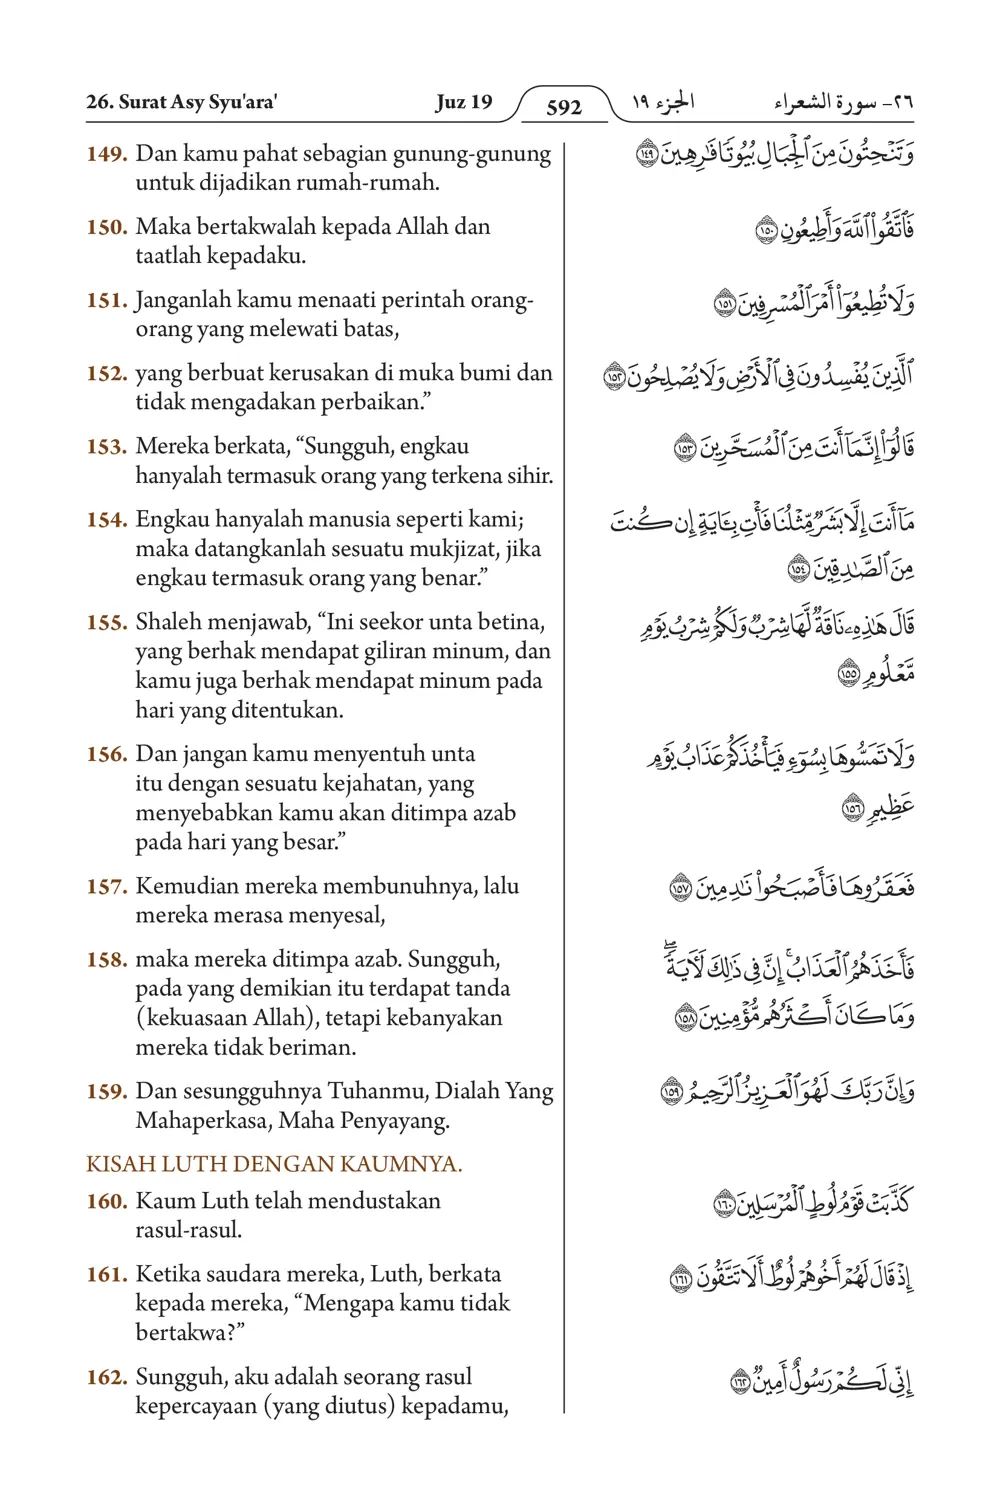 26. Surat Asy Syu'ara'
Juz 19
592
الجزء ١٩
٢٦- سورة الشعراء
149. Dan kamu pahat sebagian gunung-gunung
untuk dijadikan rumah-rumah.
150. Maka bertakwalah kepada Allah dan
taatlah kepadaku.
151. Janganlah kamu menaati perintah orang-
orang yang melewati batas,
152. yang berbuat kerusakan di muka bumi dan
tidak mengadakan perbaikan.”
153. Mereka berkata, “Sungguh, engkau
hanyalah termasuk orang yang terkena sihir.
154. Engkau hanyalah manusia seperti kami;
maka datangkanlah sesuatu mukjizat, jika
engkau termasuk orang yang benar.”
155. Shaleh menjawab, “Ini seekor unta betina,
yang berhak mendapat giliran minum, dan
kamu juga berhak mendapat minum pada
hari yang ditentukan.
156. Dan jangan kamu menyentuh unta
itu dengan sesuatu kejahatan, yang
menyebabkan kamu akan ditimpa azab
pada hari yang besar.”
157. Kemudian mereka membunuhnya, lalu
mereka merasa menyesal,
158. maka mereka ditimpa azab. Sungguh,
pada yang demikian itu terdapat tanda
(kekuasaan Allah), tetapi kebanyakan
mereka tidak beriman.
159. Dan sesungguhnya Tuhanmu, Dialah Yang
Mahaperkasa, Maha Penyayang.
KISAH LUTH DENGAN KAUMNYA.
160. Kaum Luth telah mendustakan
rasul-rasul.
161. Ketika saudara mereka, Luth, berkata
kepada mereka, “Mengapa kamu tidak
bertakwa?”
162. Sungguh, aku adalah seorang rasul
kepercayaan (yang diutus) kepadamu,
وَتَنْحِتُونَ مِنَ ٱلْجِبَالِ بُيُوتًا فَـٰرِهِينَ ١٤٩
فَٱتَّقُوا۟ ٱللَّهَ وَأَطِيعُونِ ١٥٠
وَلَا تُطِيعُوٓا۟ أَمْرَ ٱلْمُسْرِفِينَ ١٥١
ٱلَّذِينَ يُفْسِدُونَ فِى ٱلْأَرْضِ وَلَا يُصْلِحُونَ ١٥٢
قَالُوٓا۟ إِنَّمَآ أَنتَ مِنَ ٱلْمُسَحَّرِينَ ١٥٣
مَآ أَنتَ إِلَّا بَشَرٌ مِّثْلُنَا فَأْتِ بِـَٔايَةٍ إِن كُنتَ
مِنَ ٱلصَّـٰدِقِينَ ١٥٤
قَالَ هَـٰذِهِۦ نَاقَةٌ لَّهَا شِرْبٌ وَلَكُمْ شِرْبُ يَوْمٍ
مَّعْلُومٍ ١٥٥
وَلَا تَمَسُّوهَا بِسُوٓءٍ فَيَأْخُذَكُمْ عَذَابُ يَوْمٍ
عَظِيمٍ ١٥٦
فَعَقَرُوهَا فَأَصْبَحُوا۟ نَـٰدِمِينَ ١٥٧
فَأَخَذَهُمُ ٱلْعَذَابُ ۚ إِنَّ فِى ذَٰلِكَ لَـَٔايَةً ۖ
وَمَا كَانَ أَكْثَرُهُم مُّؤْمِنِينَ ١٥٨
وَإِنَّ رَبَّكَ لَهُوَ ٱلْعَزِيزُ ٱلرَّحِيمُ ١٥٩
كَذَّبَتْ قَوْمُ لُوطٍ ٱلْمُرْسَلِينَ ١٦٠
إِذْ قَالَ لَهُمْ أَخُوهُمْ لُوطٌ أَلَا تَتَّقُونَ ١٦١
إِنِّى لَكُمْ رَسُولٌ أَمِينٌ ١٦٢